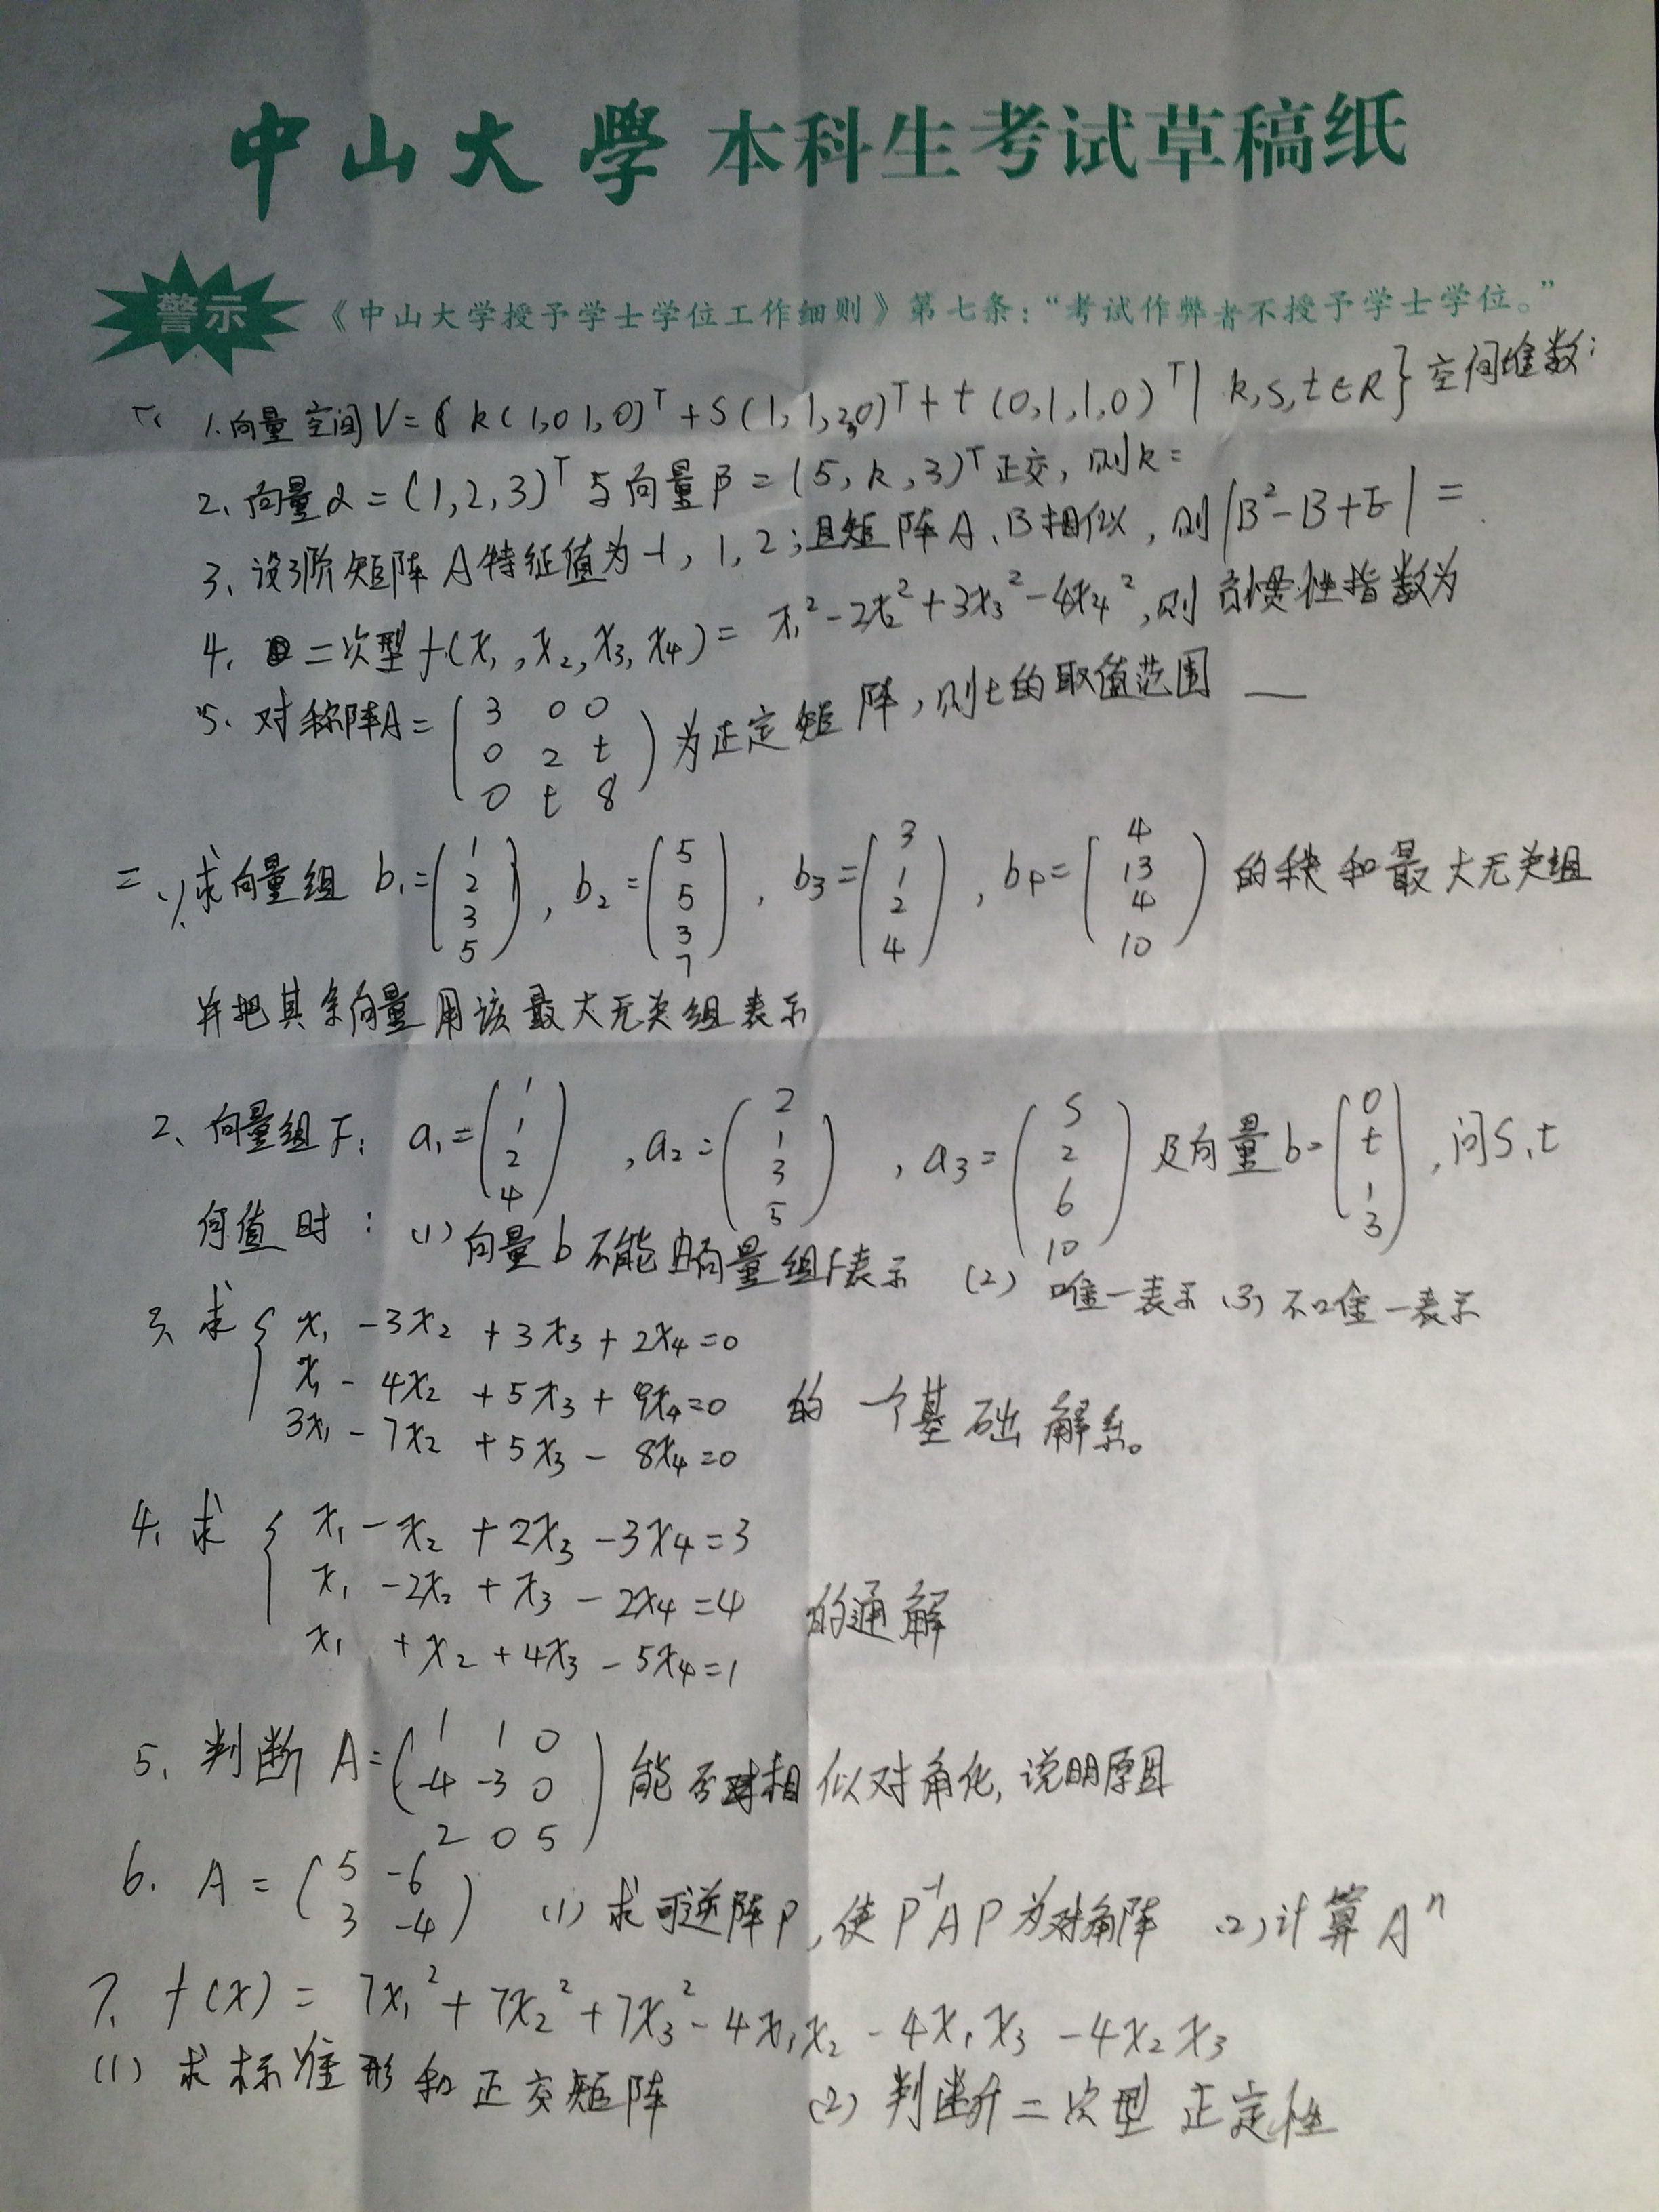 中山大學 本科生考试草稿纸
警示 《中山大学授予学士学位工作细则》第七条：“考试作弊者不授予学士学位。”
一、 1.向量空间V={ k(1,0,1,0)ᵀ+s(1,1,2,0)ᵀ+t(0,1,1,0)ᵀ| k,s,t∈R} 空间维数：
2、向量α=(1,2,3)ᵀ与向量β=(5,k,3)ᵀ正交，则k=
3、设3阶矩阵A特征值为-1，1，2；且矩阵A、B相似，则|B²-B+E|=
4、二次型f(x₁,x₂,x₃,x₄)=x₁²-2x₂²+3x₃²-4x₄²，则负惯性指数为
5、对称阵A=
3 0 0
0 2 t
0 t 8
为正定矩阵，则t的取值范围 __
二、1、求向量组 b₁=(1 2 3 5), b₂=(5 5 3 7), b₃=(3 1 2 4), b₄=(4 13 4 10) 的秩和最大无关组
并把其余向量用该最大无关组表示
2、向量组F: a₁=(1 1 2 4), a₂=(2 1 3 5), a₃=(s 2 6 10) 及向量b=(0 t 1 3), 问s,t
何值时：(1)向量b不能由向量组F表示 (2) 唯一表示 (3) 不唯一表示
3、求 { x₁-3x₂+3x₃+2x₄=0
x₁-4x₂+5x₃+9x₄=0 的一个基础解系。
3x₁-7x₂+5x₃-8x₄=0
4、求 { x₁-x₂+2x₃-3x₄=3
x₁-2x₂+x₃-2x₄=4 的通解
x₁+x₂+4x₃-5x₄=1
5、判断A=
1 1 0
-4 -3 0
2 0 5
能否相似对角化，说明原因
6. A=
5 -6
3 -4
(1) 求可逆阵P，使P⁻¹AP为对角阵 (2)计算Aⁿ
7、f(x)=7x₁²+7x₂²+7x₃²-4x₁x₂-4x₁x₃-4x₂x₃
(1) 求标准形和正交矩阵 (2) 判断二次型正定性